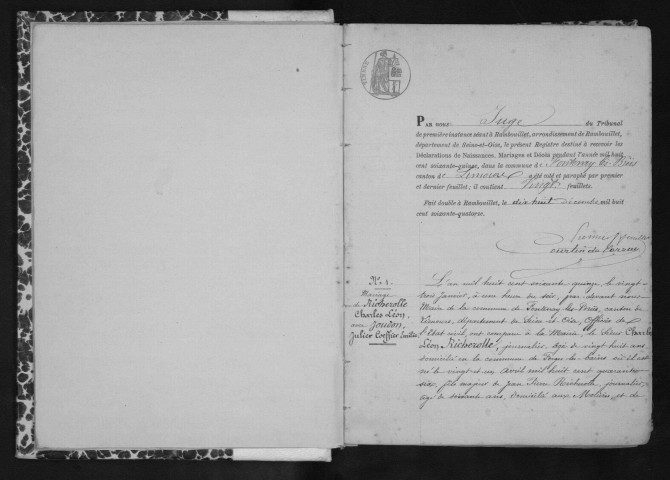 PAR NOUS Juge du Tribunal
de première instance séant à Rambouillet, arrondissement de Rambouillet,
département de Seine-et-Oise, le présent Registre destiné à recevoir les
Déclarations de Naissances, Mariages et Décès pendant l'année mil huit
cent soixante-quinze, dans la commune de Fontenay les Briis
canton de Limours a été coté et paraphé par premier
et dernier feuillet; il contient Vingt feuillets.
Fait double à Rambouillet, le dix huit Décembre mil huit
cent soixante-quatorze.
No 1.
Mariage
de Richerolle
Charles Léon,
avec Joudon,
Julie
L'an mil huit cent soixante quinze le vingt
trois janvier, à une heure du soir, par devant nous
Maire de la commune de Fontenay les Briis, canton de
Limours, département de Seine et Oise, Officier de
l'Etat civil, ont comparu à la Mairie, le Sieur Charles
Léon Richerolle, journalier, âgé de vingt huit ans,
domicilié en la commune de Forges les bains où il est
né le vingt et un avril mil huit cent quarante
six, fils majeur de Jean Pierre Richerolle, journalier,
âgé de soixante ans, domicilié aux Molières, et de